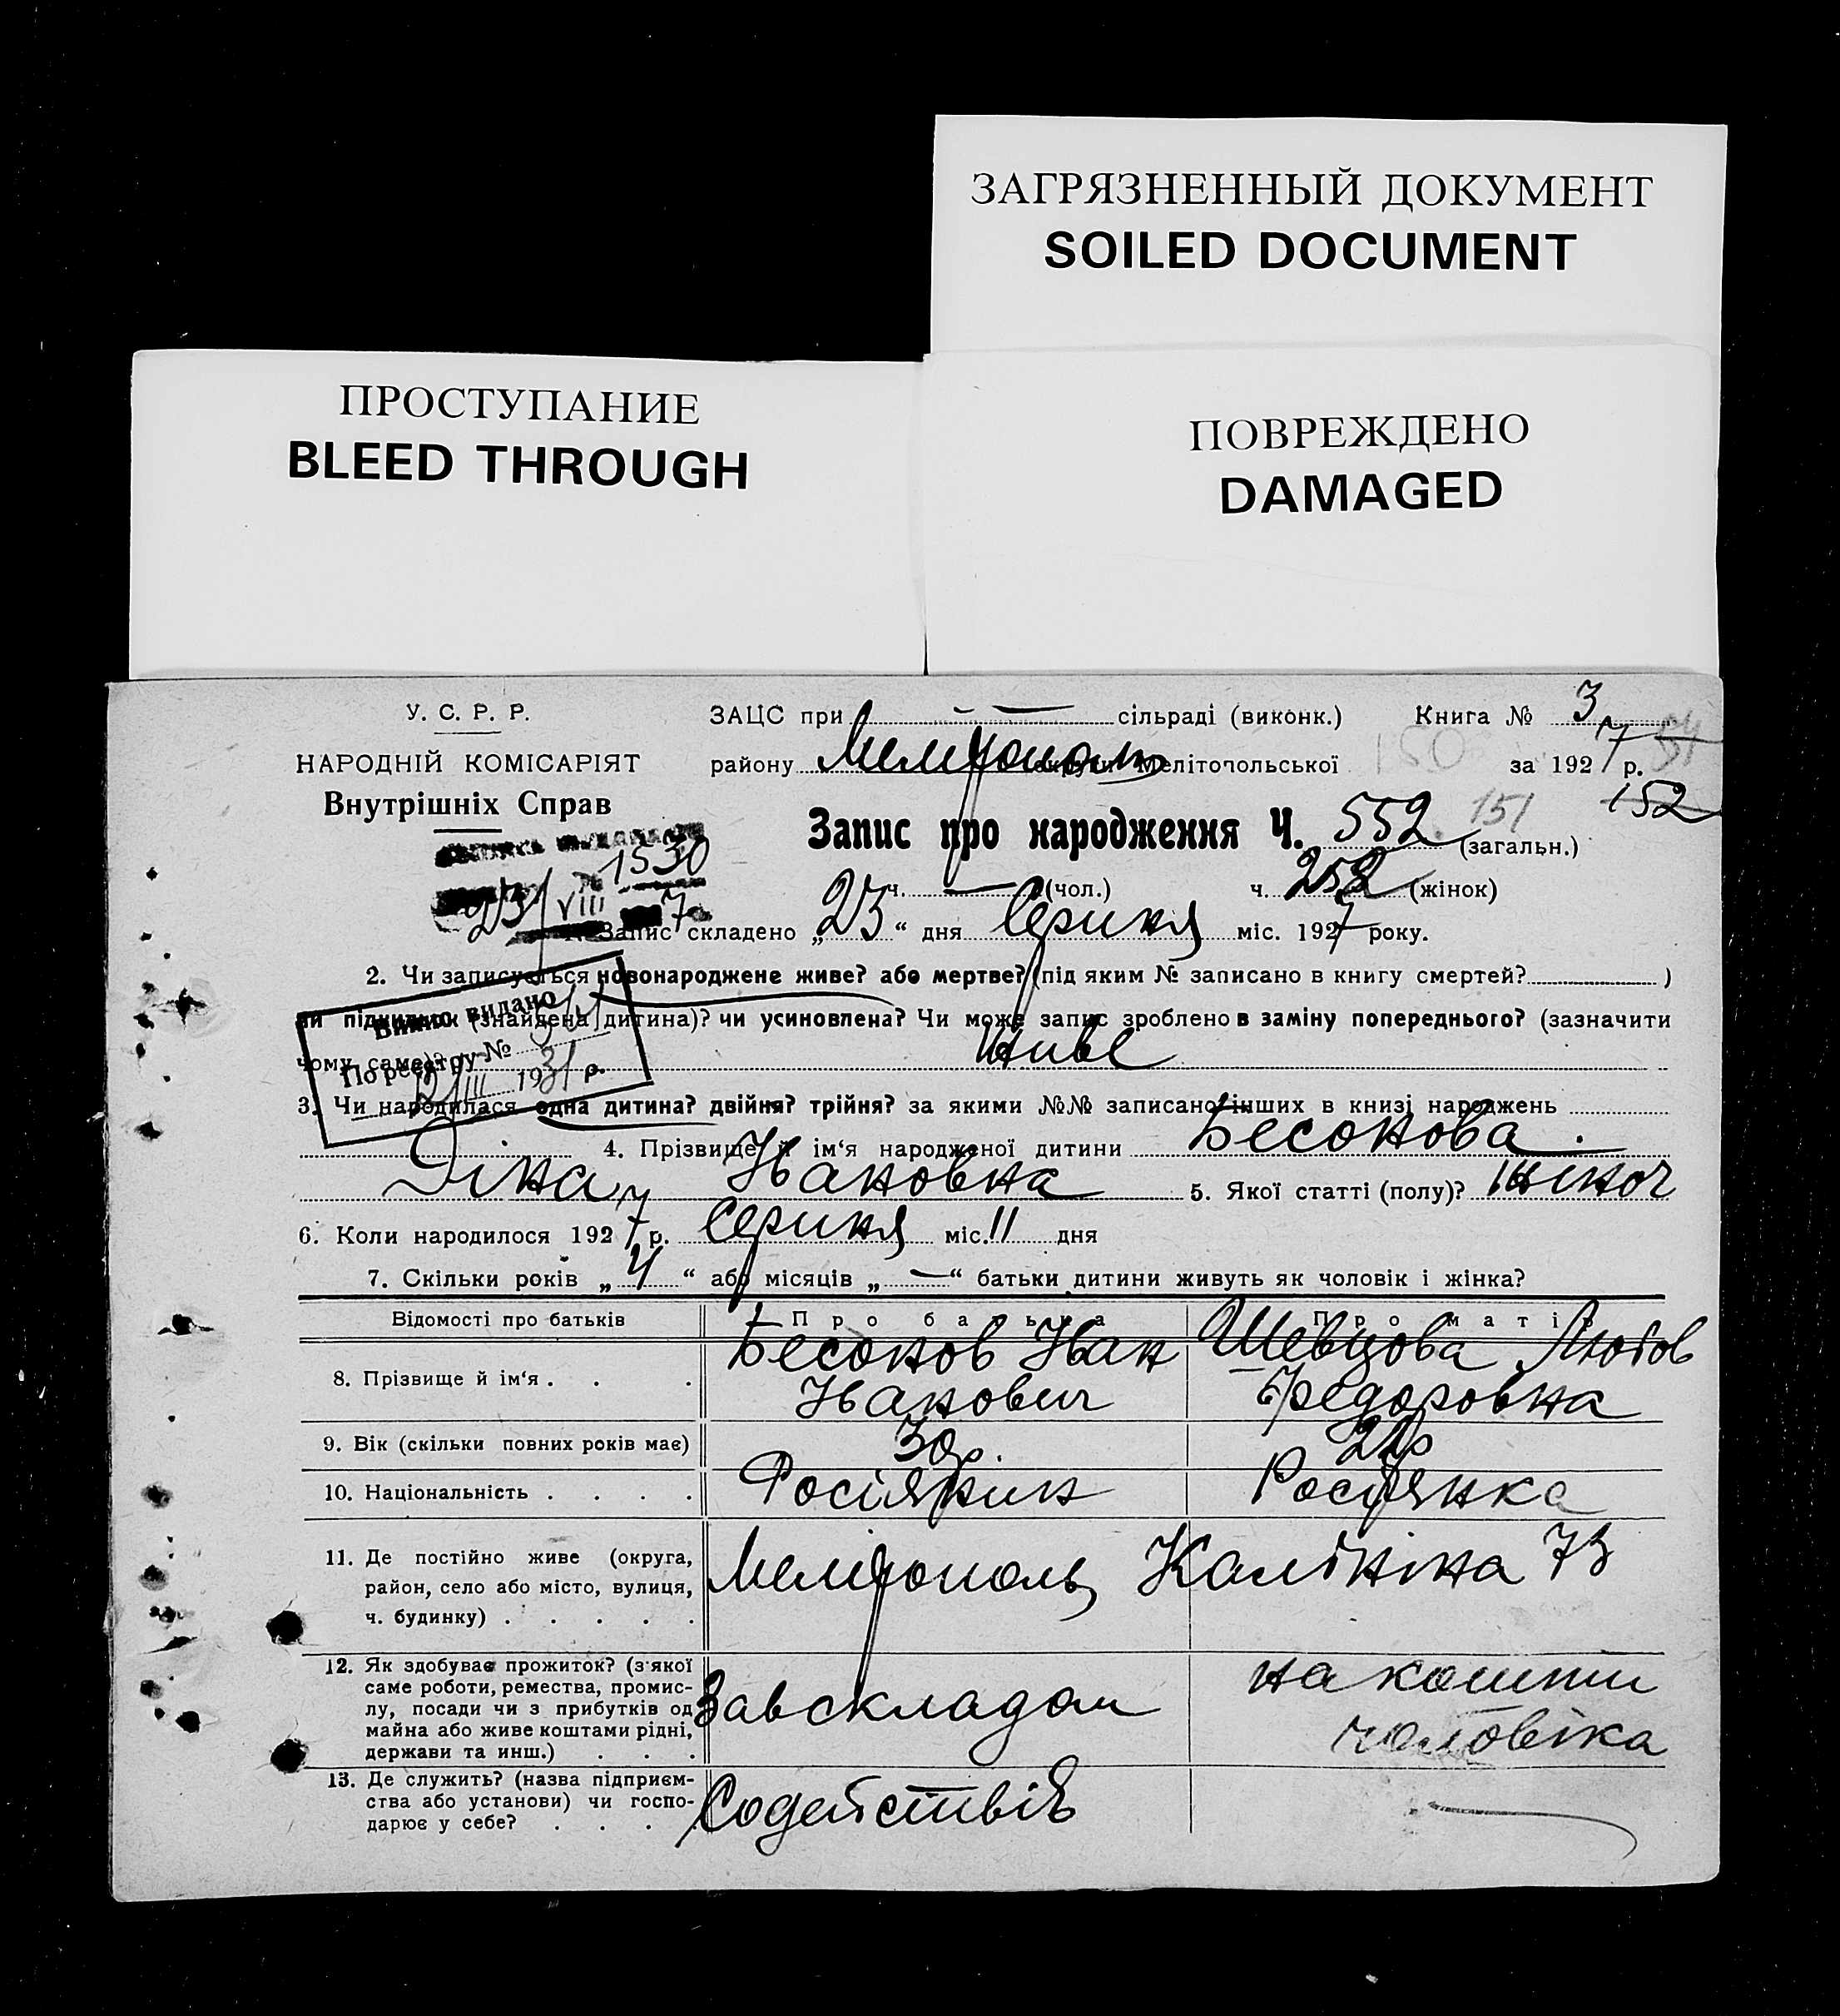 ЗАГРЯЗНЕННЫЙ ДОКУМЕНТ
SOILED DOCUMENT
ПРОСТУПАНИЕ
BLEED THROUGH
ПОВРЕЖДЕНО
DAMAGED
У. С. Р. Р.
НАРОДНІЙ КОМІСАРІЯТ
Внутрішніх Справ
1530
23/VIII 7
ЗАЦС при — сільраді (виконк.) Книга № 3
району Мелітополь округи Мелітопольської 150 за 1927 р.
152
Запис про народження Ч. 552 (загальн.) 151
ч. — (чол.) ч. 252 (жінок)
Запис складено „23“ дня Серпня міс. 1927 року.
2. Чи записується новонароджене живе? або мертве? (під яким № записано в книгу смертей? )
чи підкидьок (знайдена дитина)? чи усиновлена? Чи може запис зроблено в заміну попереднього? (зазначити
чому саме)? живе
видано
По реєстру №
12/III 1931 р.
3. Чи народилася одна дитина? двійня? трійня? за якими №№ записано інших в книзі народжень
4. Прізвище й ім‘я народженої дитини Бесонова
Діна Івановна 5. Якої статті (полу)? жіноч
6. Коли народилося 1927 р. Серпня міс. 11 дня
7. Скільки років „4“ або місяців „—“ батьки дитини живуть як чоловік і жінка?
Відомості про батьків Про батька Про матір
8. Прізвище й ім‘я . . . Бесонов Іван Іванович Шевцова Любов Федоровна
9. Вік (скільки повних років має) 30р. 21р
10. Національність . . . . Росіянин Росіянка
11. Де постійно живе (округа,
район, село або місто, вулиця,
ч. будинку) . . . . .
Мелітополь Калініна 73
12. Як здобуває прожиток? (з якої
саме роботи, ремества, промис-
лу, посади чи з прибутків од
майна або живе коштами рідні,
держави та инш.) . . .
Завскладом на кошти чоловіка
13. Де служить? (назва підприєм-
ства або установи) чи госпо-
дарює у себе? . . . .
Содействія